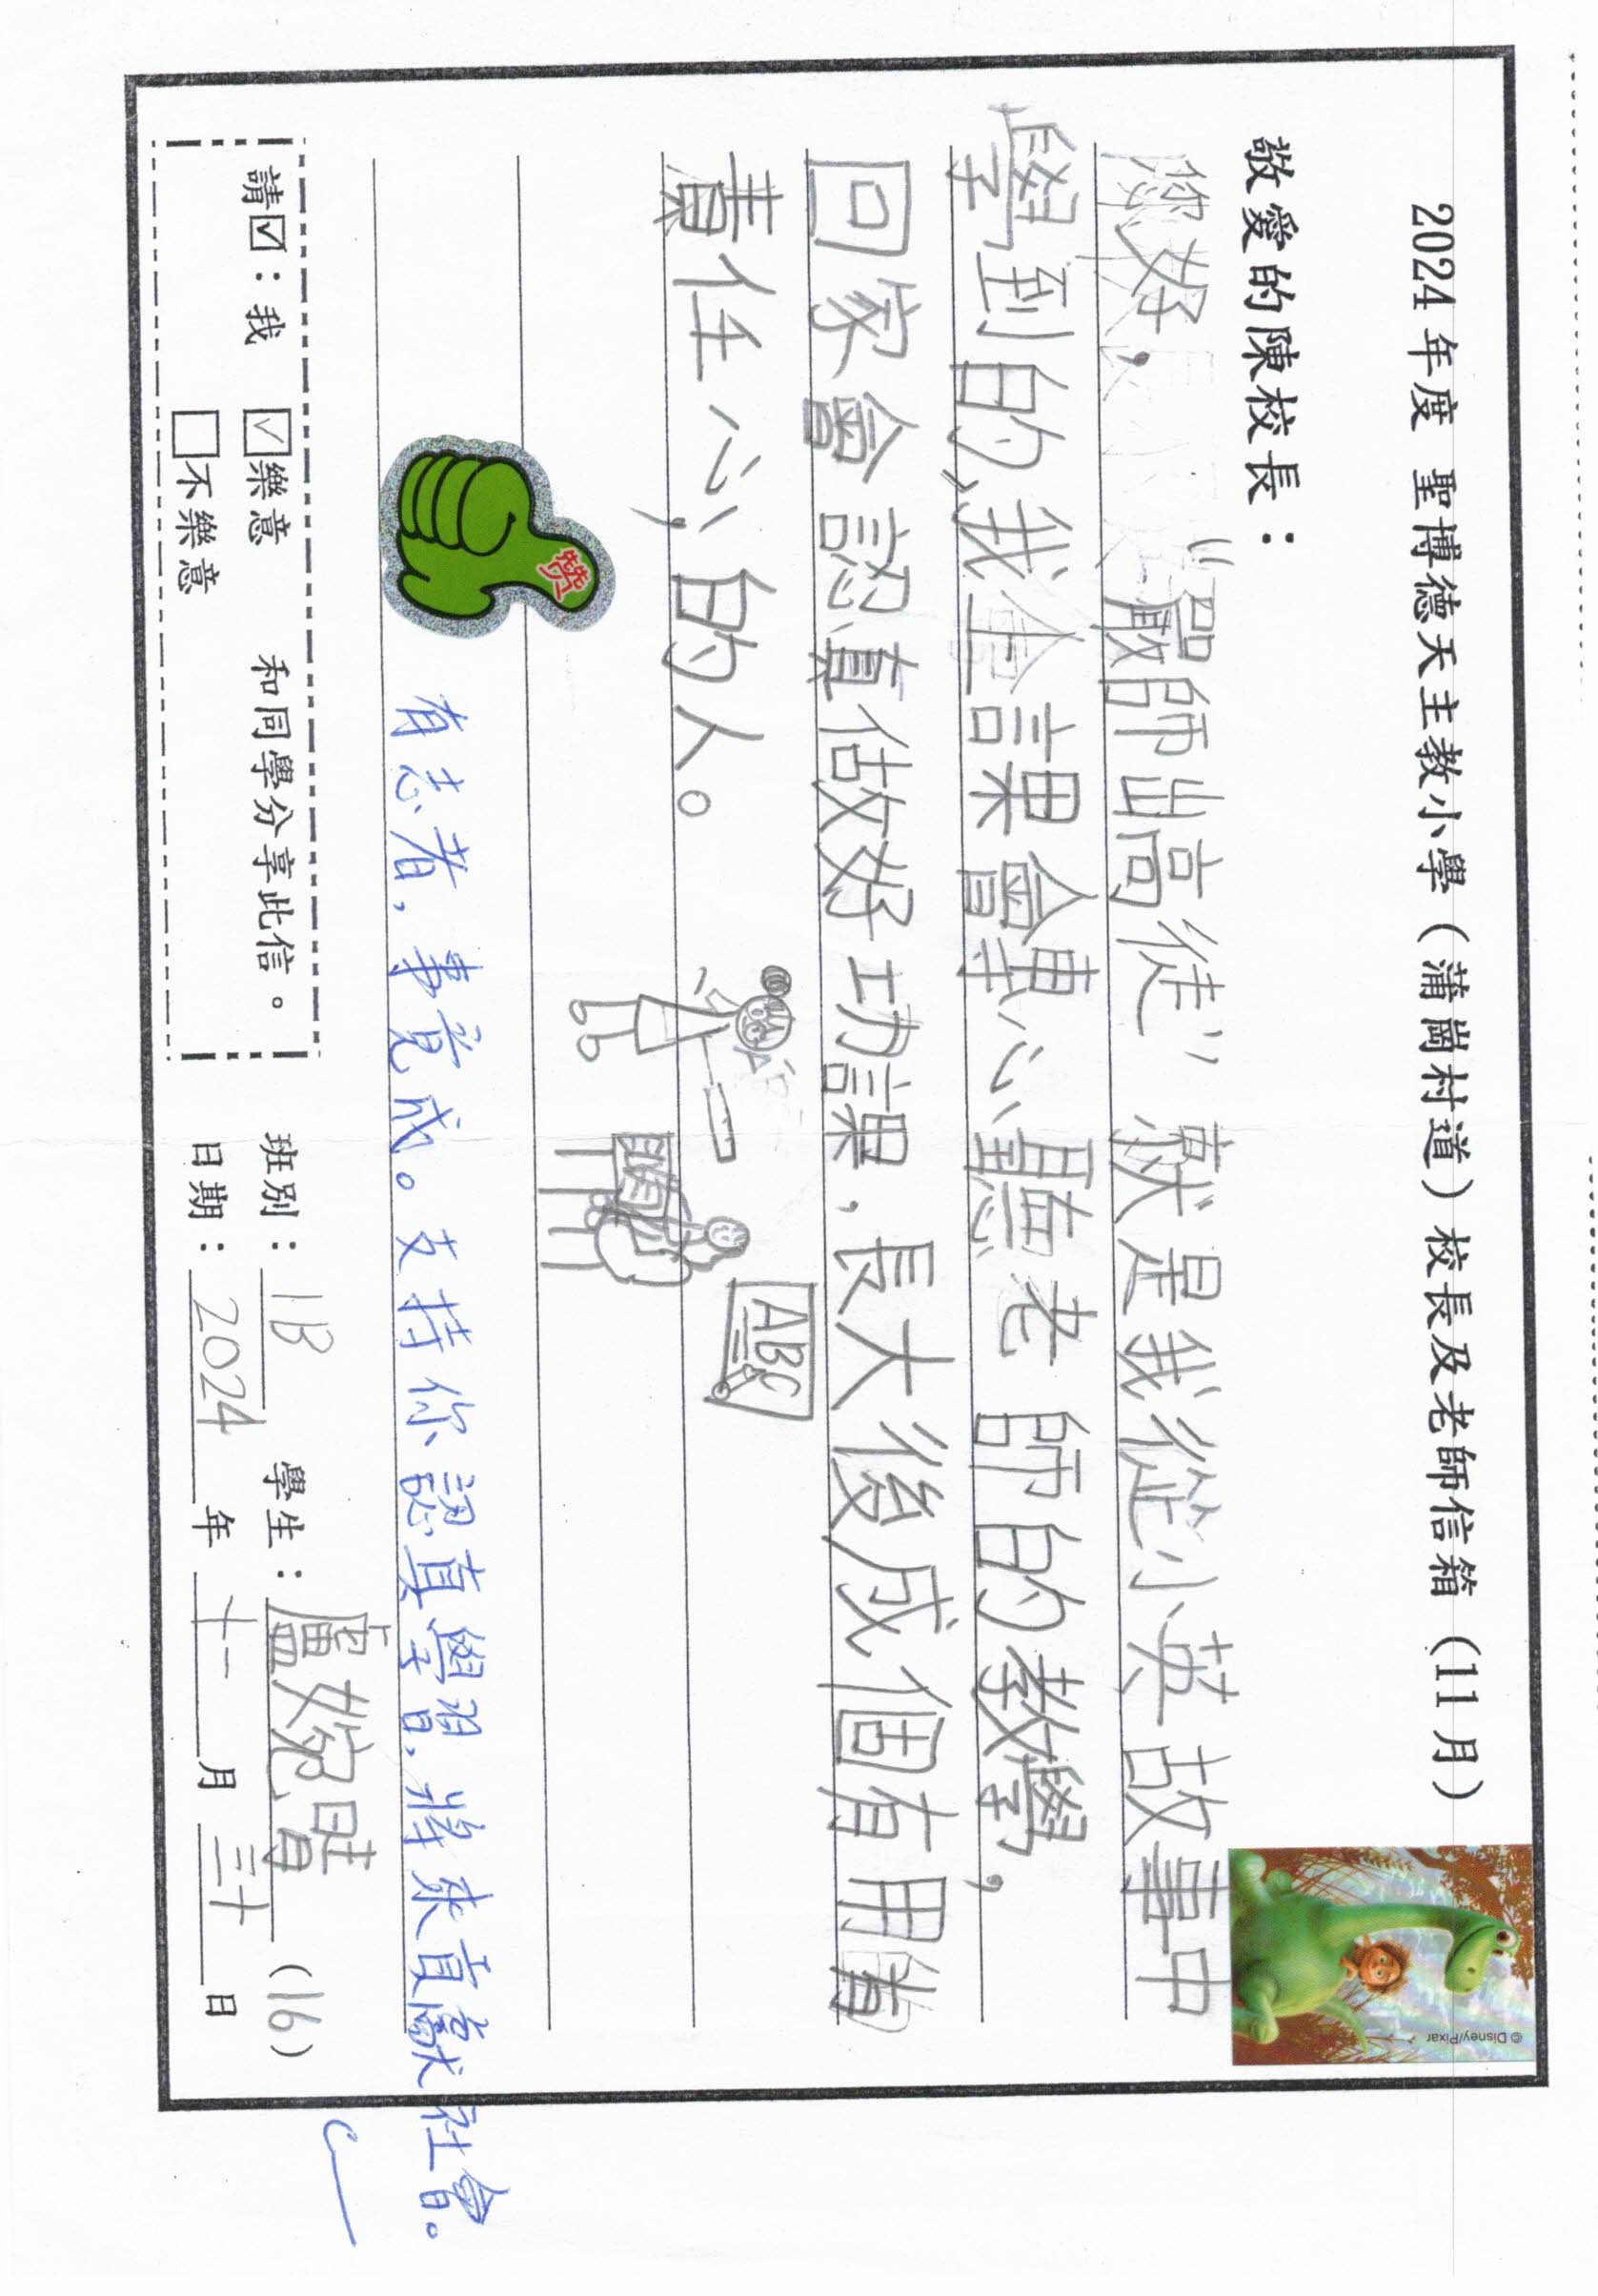 2024年度 聖博德天主教小學（蒲崗村道）校長及老師信箱（11月）
敬愛的陳校長：
您好，“嚴師出高徒”就是我從小英故事中
學到的，我上課會專心聽老師的教學，
回家會認真做好功課，長大後成個有用有
責任心的人。
ABC
赞
有志者，事竟成。支持你認真學習，將來貢獻社會。
請☑：我 ☑樂意 和同學分享此信。
☐不樂意
班別：1B 學生：盧婉晴 (16)
日期：2024年十一月三十日
© Disney/Pixar